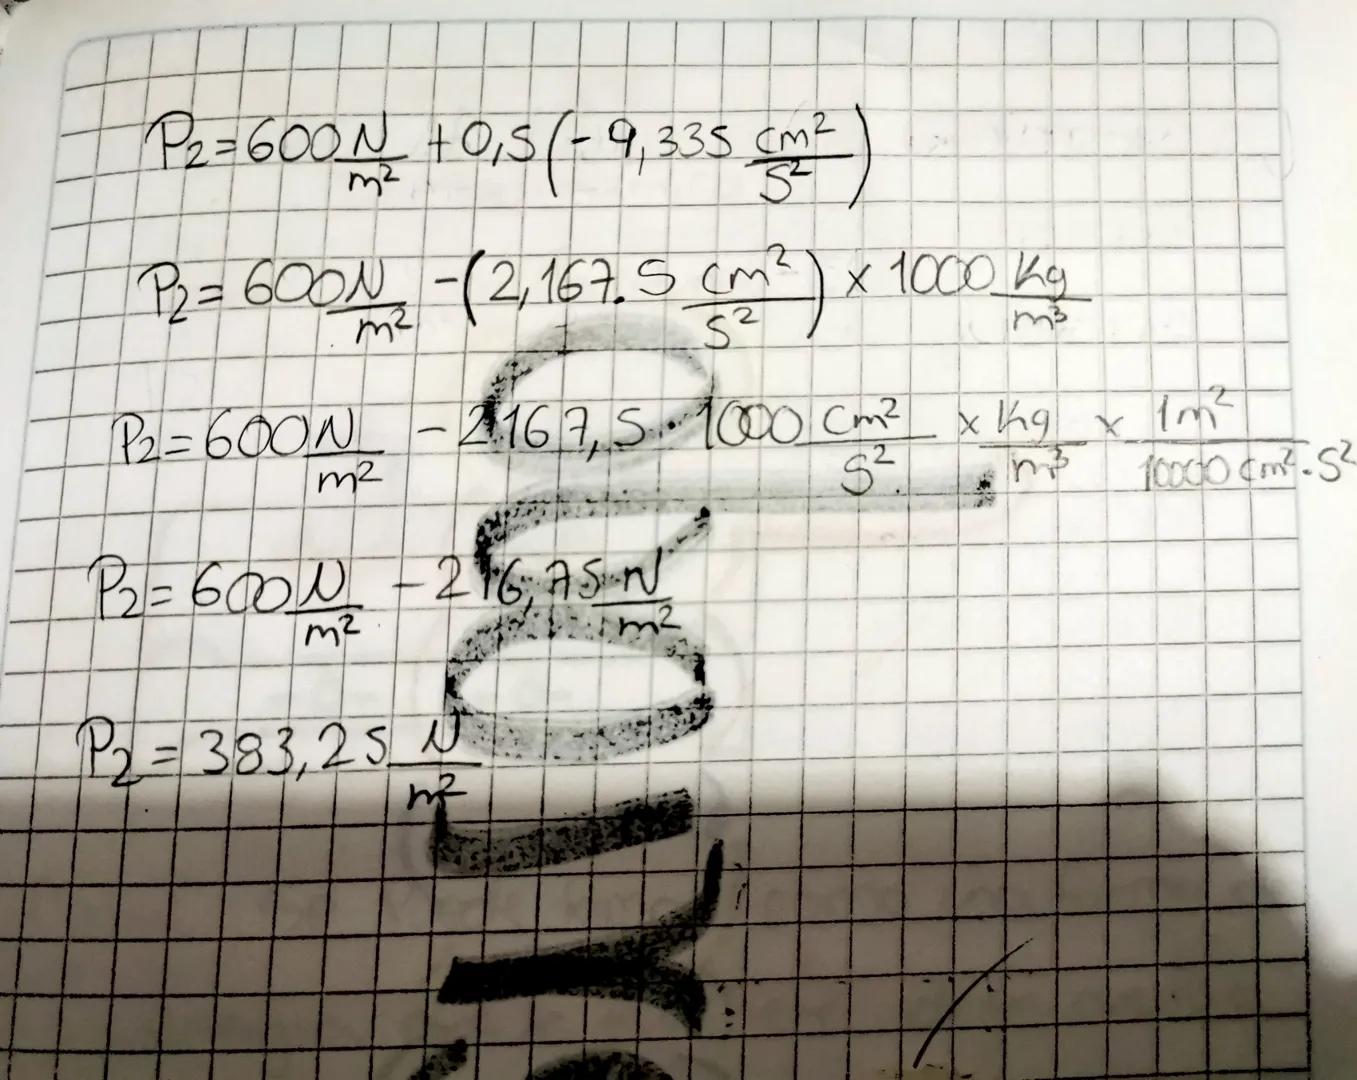 P₂ = 600 N/m² + 0,5 (- 9,335 cm²/s²)
P₂ = 600 N/m² - (2,167.5 cm²/s²) x 1000 Kg/m³
P₂ = 600 N/m² - 2167,5 · 1000 cm²/s² x Kg/m³ x 1m²/10000 cm² · s²
P₂ = 600 N/m² - 216,75 N/m²
P₂ = 383,25 N/m²